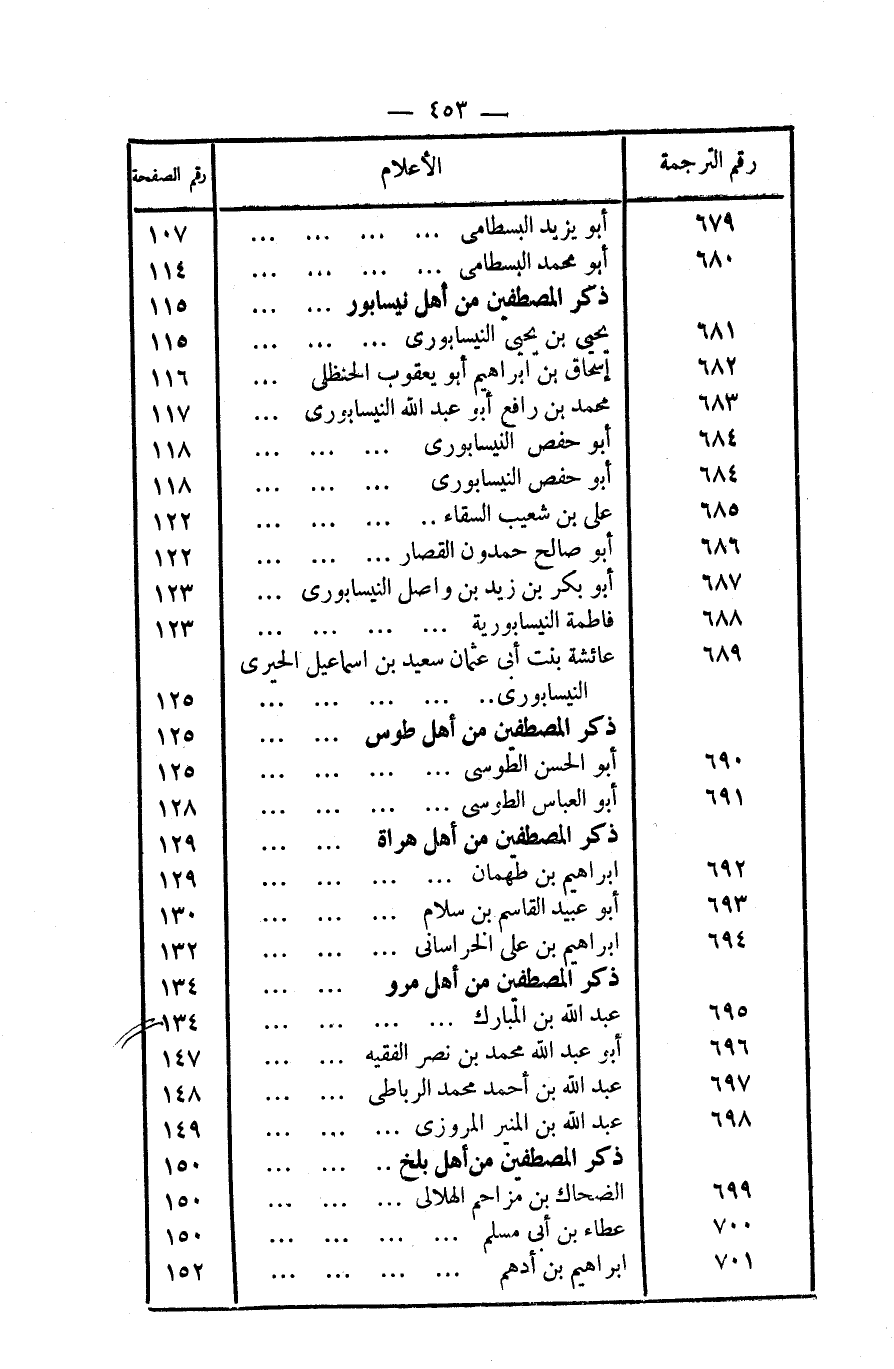 — ٤٥٣ —
رقم الترجمة الأعلام رقم الصفحة
٦٧٩ أبو يزيد البسطامى ... ... ... ... ١٠٧
٦٨٠ أبو محمد البسطامى ... ... ... ... ١١٤
ذكر المصطفين من أهل نيسابور ... ... ١١٥
٦٨١ يحيى بن يحيى النيسابورى ... ... ... ١١٥
٦٨٢ إسحاق بن ابراهيم أبو يعقوب الحنظلى ... ١١٦
٦٨٣ محمد بن رافع أبو عبد الله النيسابورى ... ١١٧
٦٨٤ أبو حفص النيسابورى ... ... ... ١١٨
٦٨٤ أبو حفص النيسابورى ... ... ... ١١٨
٦٨٥ على بن شعيب السقاء .. ... ... ... ١٢٢
٦٨٦ أبو صالح حمدون القصار ... ... ... ١٢٢
٦٨٧ أبو بكر بن زيد بن واصل النيسابورى ... ١٢٣
٦٨٨ فاطمة النيسابورية ... ... ... ... ١٢٣
٦٨٩ عائشة بنت أبى عثمان سعيد بن اسماعيل الحيرى
النيسابورى.. ... ... ... ... ١٢٥
ذكر المصطفين من أهل طوس ... ... ١٢٥
٦٩٠ أبو الحسن الطوسى ... ... ... ... ١٢٥
٦٩١ أبو العباس الطوسى ... ... ... ... ١٢٨
ذكر المصطفين من أهل هراة ... ... ١٢٩
٦٩٢ ابراهيم بن طهمان ... ... ... ... ١٢٩
٦٩٣ أبو عبيد القاسم بن سلام ... ... ... ١٣٠
٦٩٤ ابراهيم بن على الخراسانى ... ... ... ١٣٢
ذكر المصطفين من أهل مرو ... ... ١٣٤
٦٩٥ عبد الله بن المبارك ... ... ... ... ١٣٤
٦٩٦ أبو عبد الله محمد بن نصر الفقيه ... ... ١٤٧
٦٩٧ عبد الله بن أحمد محمد الرباطى ... ... ١٤٨
٦٩٨ عبد الله بن المنير المروزى ... ... ... ١٤٩
ذكر المصطفين من أهل بلخ .. ... ... ١٥٠
٦٩٩ الضحاك بن مزاحم الهلالى ... ... ... ١٥٠
٧٠٠ عطاء بن أبى مسلم ... ... ... ... ١٥٠
٧٠١ ابراهيم بن أدهم ... ... ... ... ١٥٢